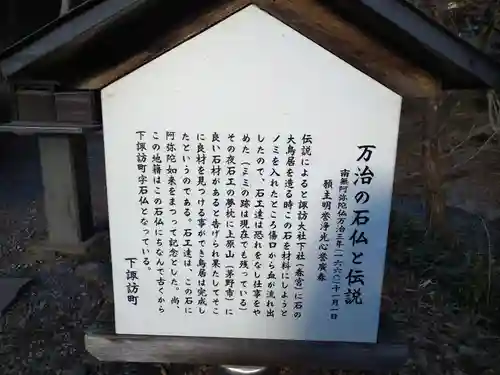 万治の石仏と伝説
南無阿弥陀仏万治三年(一六六〇)十一月一日
願主明誉浄光心誉廣春
伝説によると諏訪大社下社(春宮)に石の
大鳥居を造る時この石を材料にしようと
ノミを入れたところ傷口から血が流れ出
したので、石工達は恐れをなし仕事をや
めた(ノミの跡は現在でも残っている)
その夜石工の夢枕に上原山(茅野市)に
良い石材があると告げられ果たしてそこ
に良材を見つける事ができ鳥居は完成し
たというのである。石工達は、この石に
阿弥陀如来をまつって記念とした。尚、
この地籍はこの石仏にちなんで古くから
下諏訪町字石仏となっている。
下諏訪町